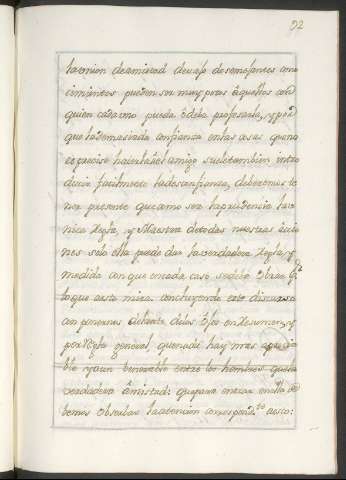 92
la union de amistad de vaso de semejantes cono
cimientos pueden ser muy pocos aquellos con
quien cada uno pueda o deba profesarla, y por
que la demasiada confianza en las cosas que no
es preciso haierlas el amigo suele tambien intro
ducir facilmente la desconfianza, deberemos te
ner presente que como sea la prudencia la u
nica Regla, y Maestra de todas nuestras accio
nes solo ella puede dar la verdadera Regla, y
medida con que en cada caso se debe obrar
lo que a esta mira. concluyendo este discurso
con ponernos delante de los ojos en resumen, y
por Regla general, que nada hay mas aprecia
ble y aun venerable entre los hombres que la
verdadera amistad: que para entrar en ella de
bemos observar la atencion correspond.te a esto: